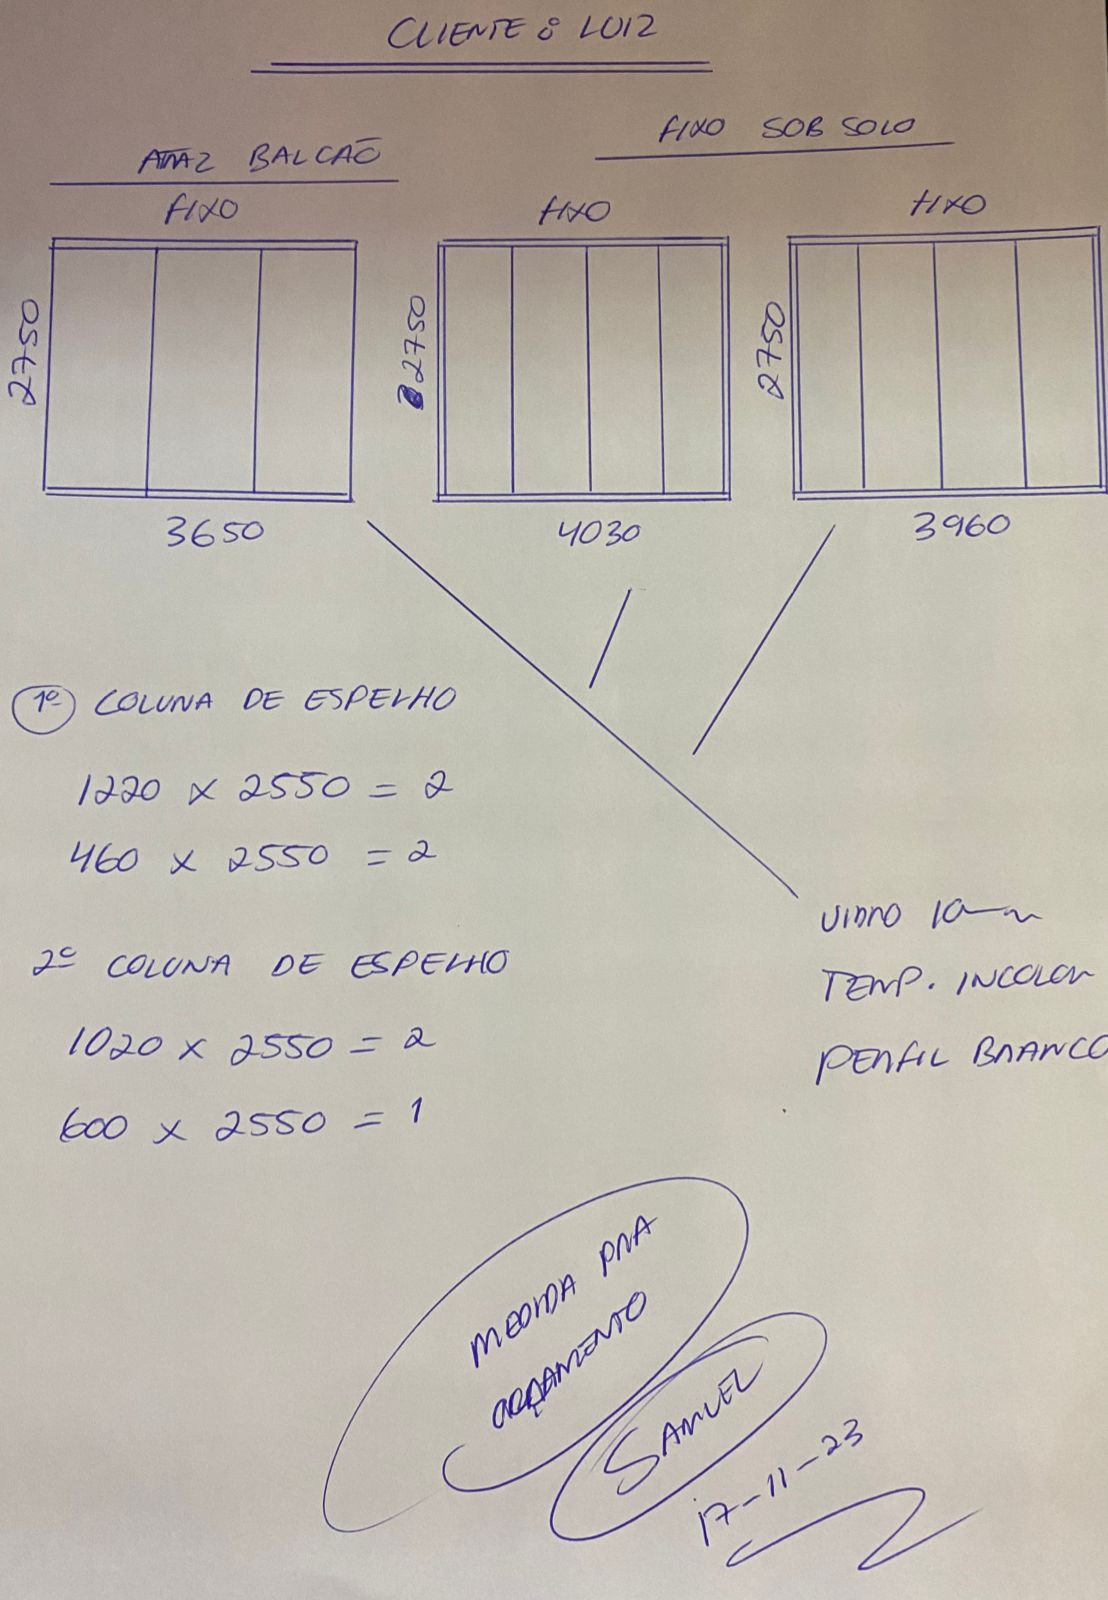 CLIENTE : LUIZ
ATRAZ BALCÃO
FIXO SOB SOLO
FIXO
FIXO
FIXO
2750
2750
2750
3650
4030
3960
1º COLUNA DE ESPELHO
1220 x 2550 = 2
460 x 2550 = 2
2º COLUNA DE ESPELHO
1020 x 2550 = 2
600 x 2550 = 1
VIDRO 10mm
TEMP. INCOLOR
PERFIL BRANCO
MEDIDA PRA
ORÇAMENTO
SAMUEL
17-11-23